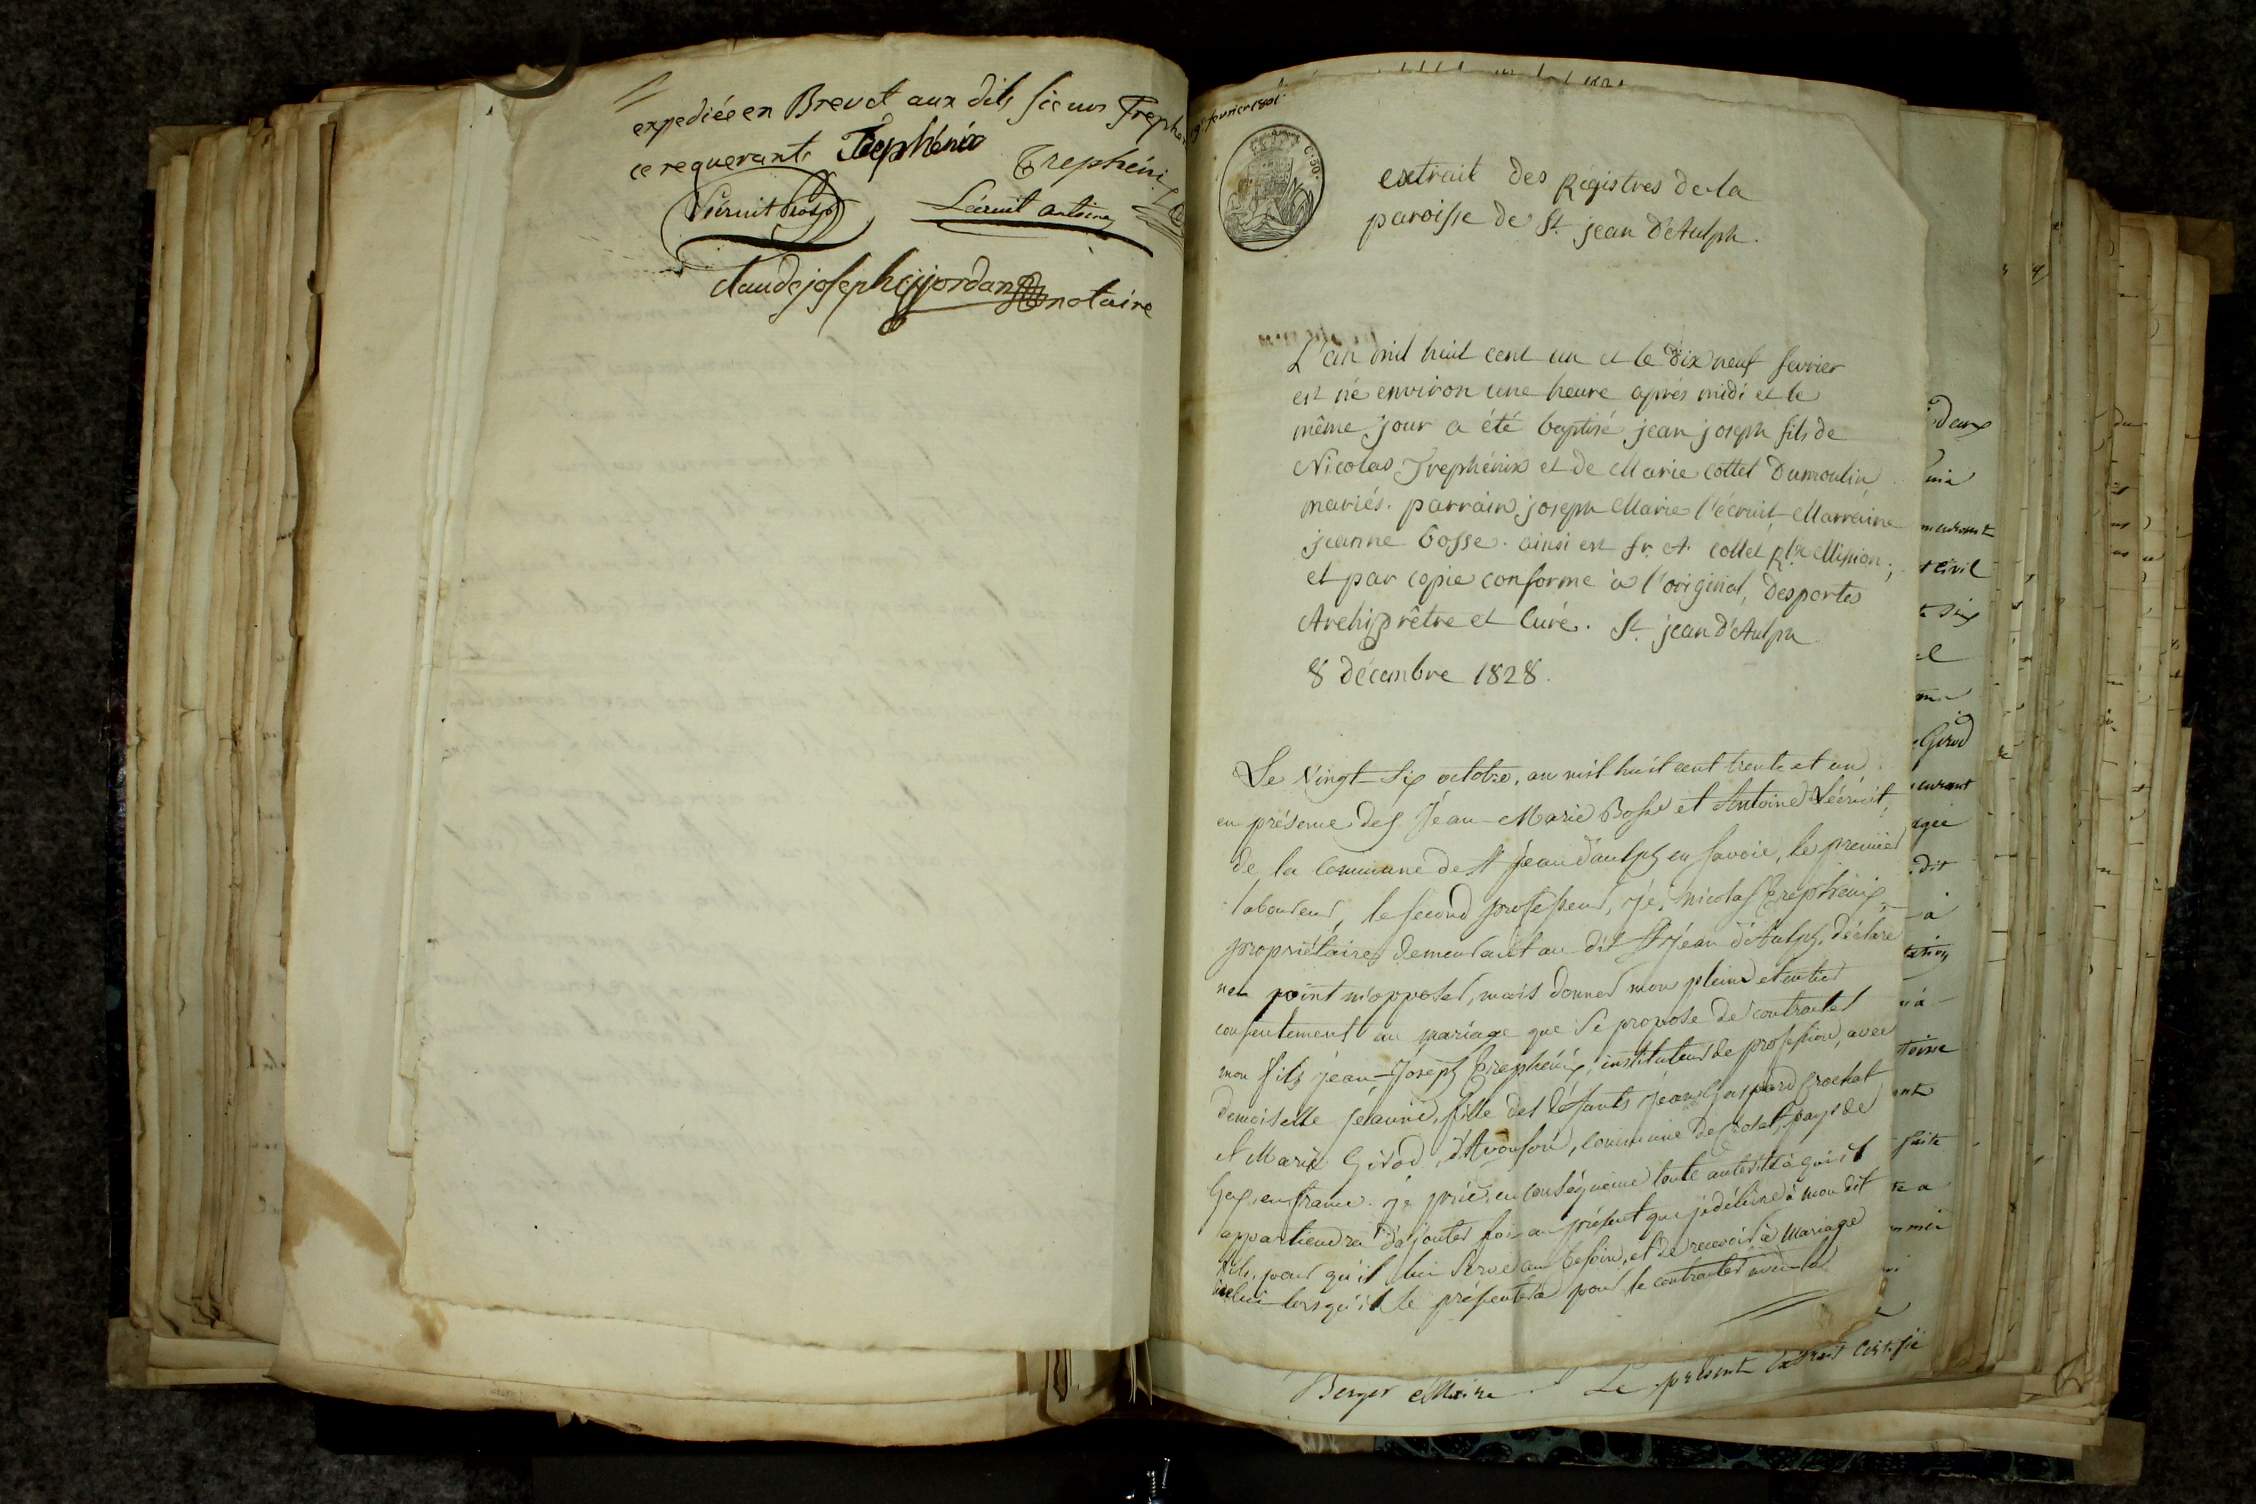 expediée en Brevet aux dits sieurs Trephe
ce requerant. Trephénix
Trephéni
Lécruit
Lécruit antoine
claude joseph jordan notaire
19 fevrier 1801.
C. 50.
extrait des Registres de la
paroisse de St. jean D'Aulph.
L'an mil huit cent un et le dix neuf fevrier
est né environ une heure après midi et le
même jour a été baptisé jean joseph fils de
Nicolas Trephénix et de Marie Cottet Dumoulin
mariés. parrain joseph Marie l'écruit Marraine
jeanne bosse. ainsi est sr. A. Cottet Rtr. Mission;
et par copie conforme à l'original, Desportes
Archiprêtre et Curé. St. jean d'Aulph
8 décembre 1828.
Le Vingt-Six octobre, an mil huit cent trente et un
en présence des Jéan-Marie Bosse et Antoine Lécruit,
de la Commune de St Jean d'aulph en Savoie, le premier
laboureur, le second professeur, je, Nicolas Trephénix,
propriétaire, demeurant au dit St Jéan d'Aulph, déclare
ne point m'opposer, mais donner mon plein et entier
consentement au mariage que se propose de contracter
mon fils Jéan-Joseph Trephénix, instituteur de profession, avec
demoiselle Jéanne, fille des défunts Jéan Gaspard Crochat
et Marie Girod, d'Avouson, commune de Crozet, pays de
Gex, en france. je prie en conséquence toute autorité à qui il
appartiendra d'ajouter foi au présent que je délivre à mon dit
fils, pour qu'il lui serve au besoin, et de recevoir à Mariage
lorsqu'il se présentera pour le contracter avec la
Berger Maire. Le présent Extrait Certifié
deux
t civil
te six
Girod
dit
à